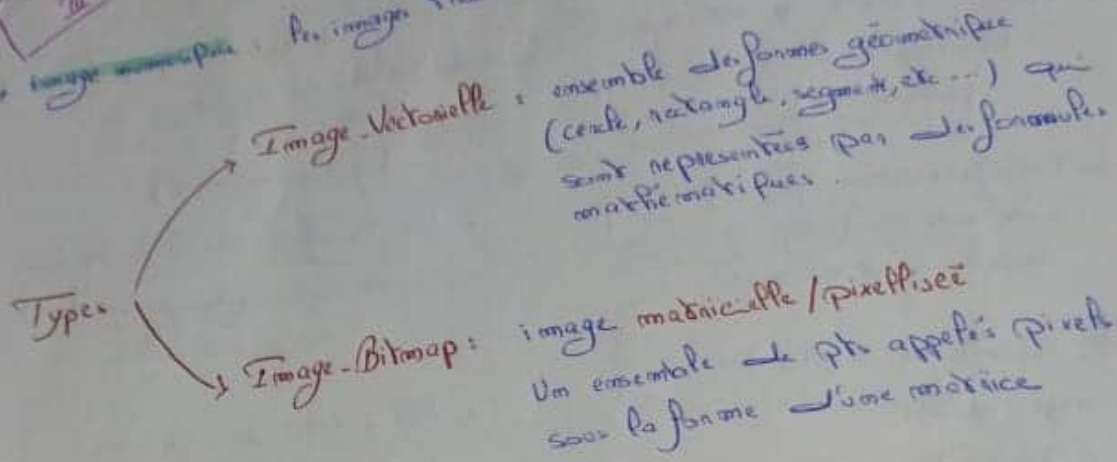 III
Image numérique. les images
Image_Vectorielle : ensemble des formes géométrique
(cercle, rectangle, segments, etc ...) qui
sont représentées par des formules
mathématiques.
Types
Image_Bitmap : image matricielle / pixellisée
Un ensemble de pts appelés pixels
sous la forme d'une matrice